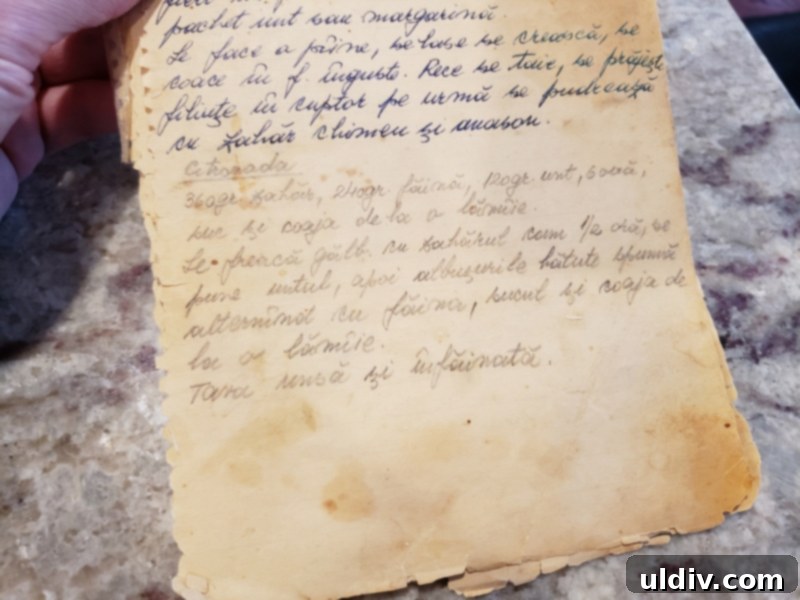 pachet unt sau margarină.
Se face a pîine, se lase se crească, se
coace în f. înguste. Rece se taie, se prăjește
feliuțe în cuptor pe urmă se pudrează
cu zahăr chimen și anason.
Citronada
360gr. zahăr, 240gr. făină, 120gr. unt, 6 ouă,
suc și coaja de la o lămîie.
Se freacă gălb. cu zahărul cam 1/2 oră, se
pune untul, apoi albușurile bătute spumă
alternînd cu făina, sucul și coaja de
la o lămîie.
Tava unsă și înfăinată.
uldiv.com